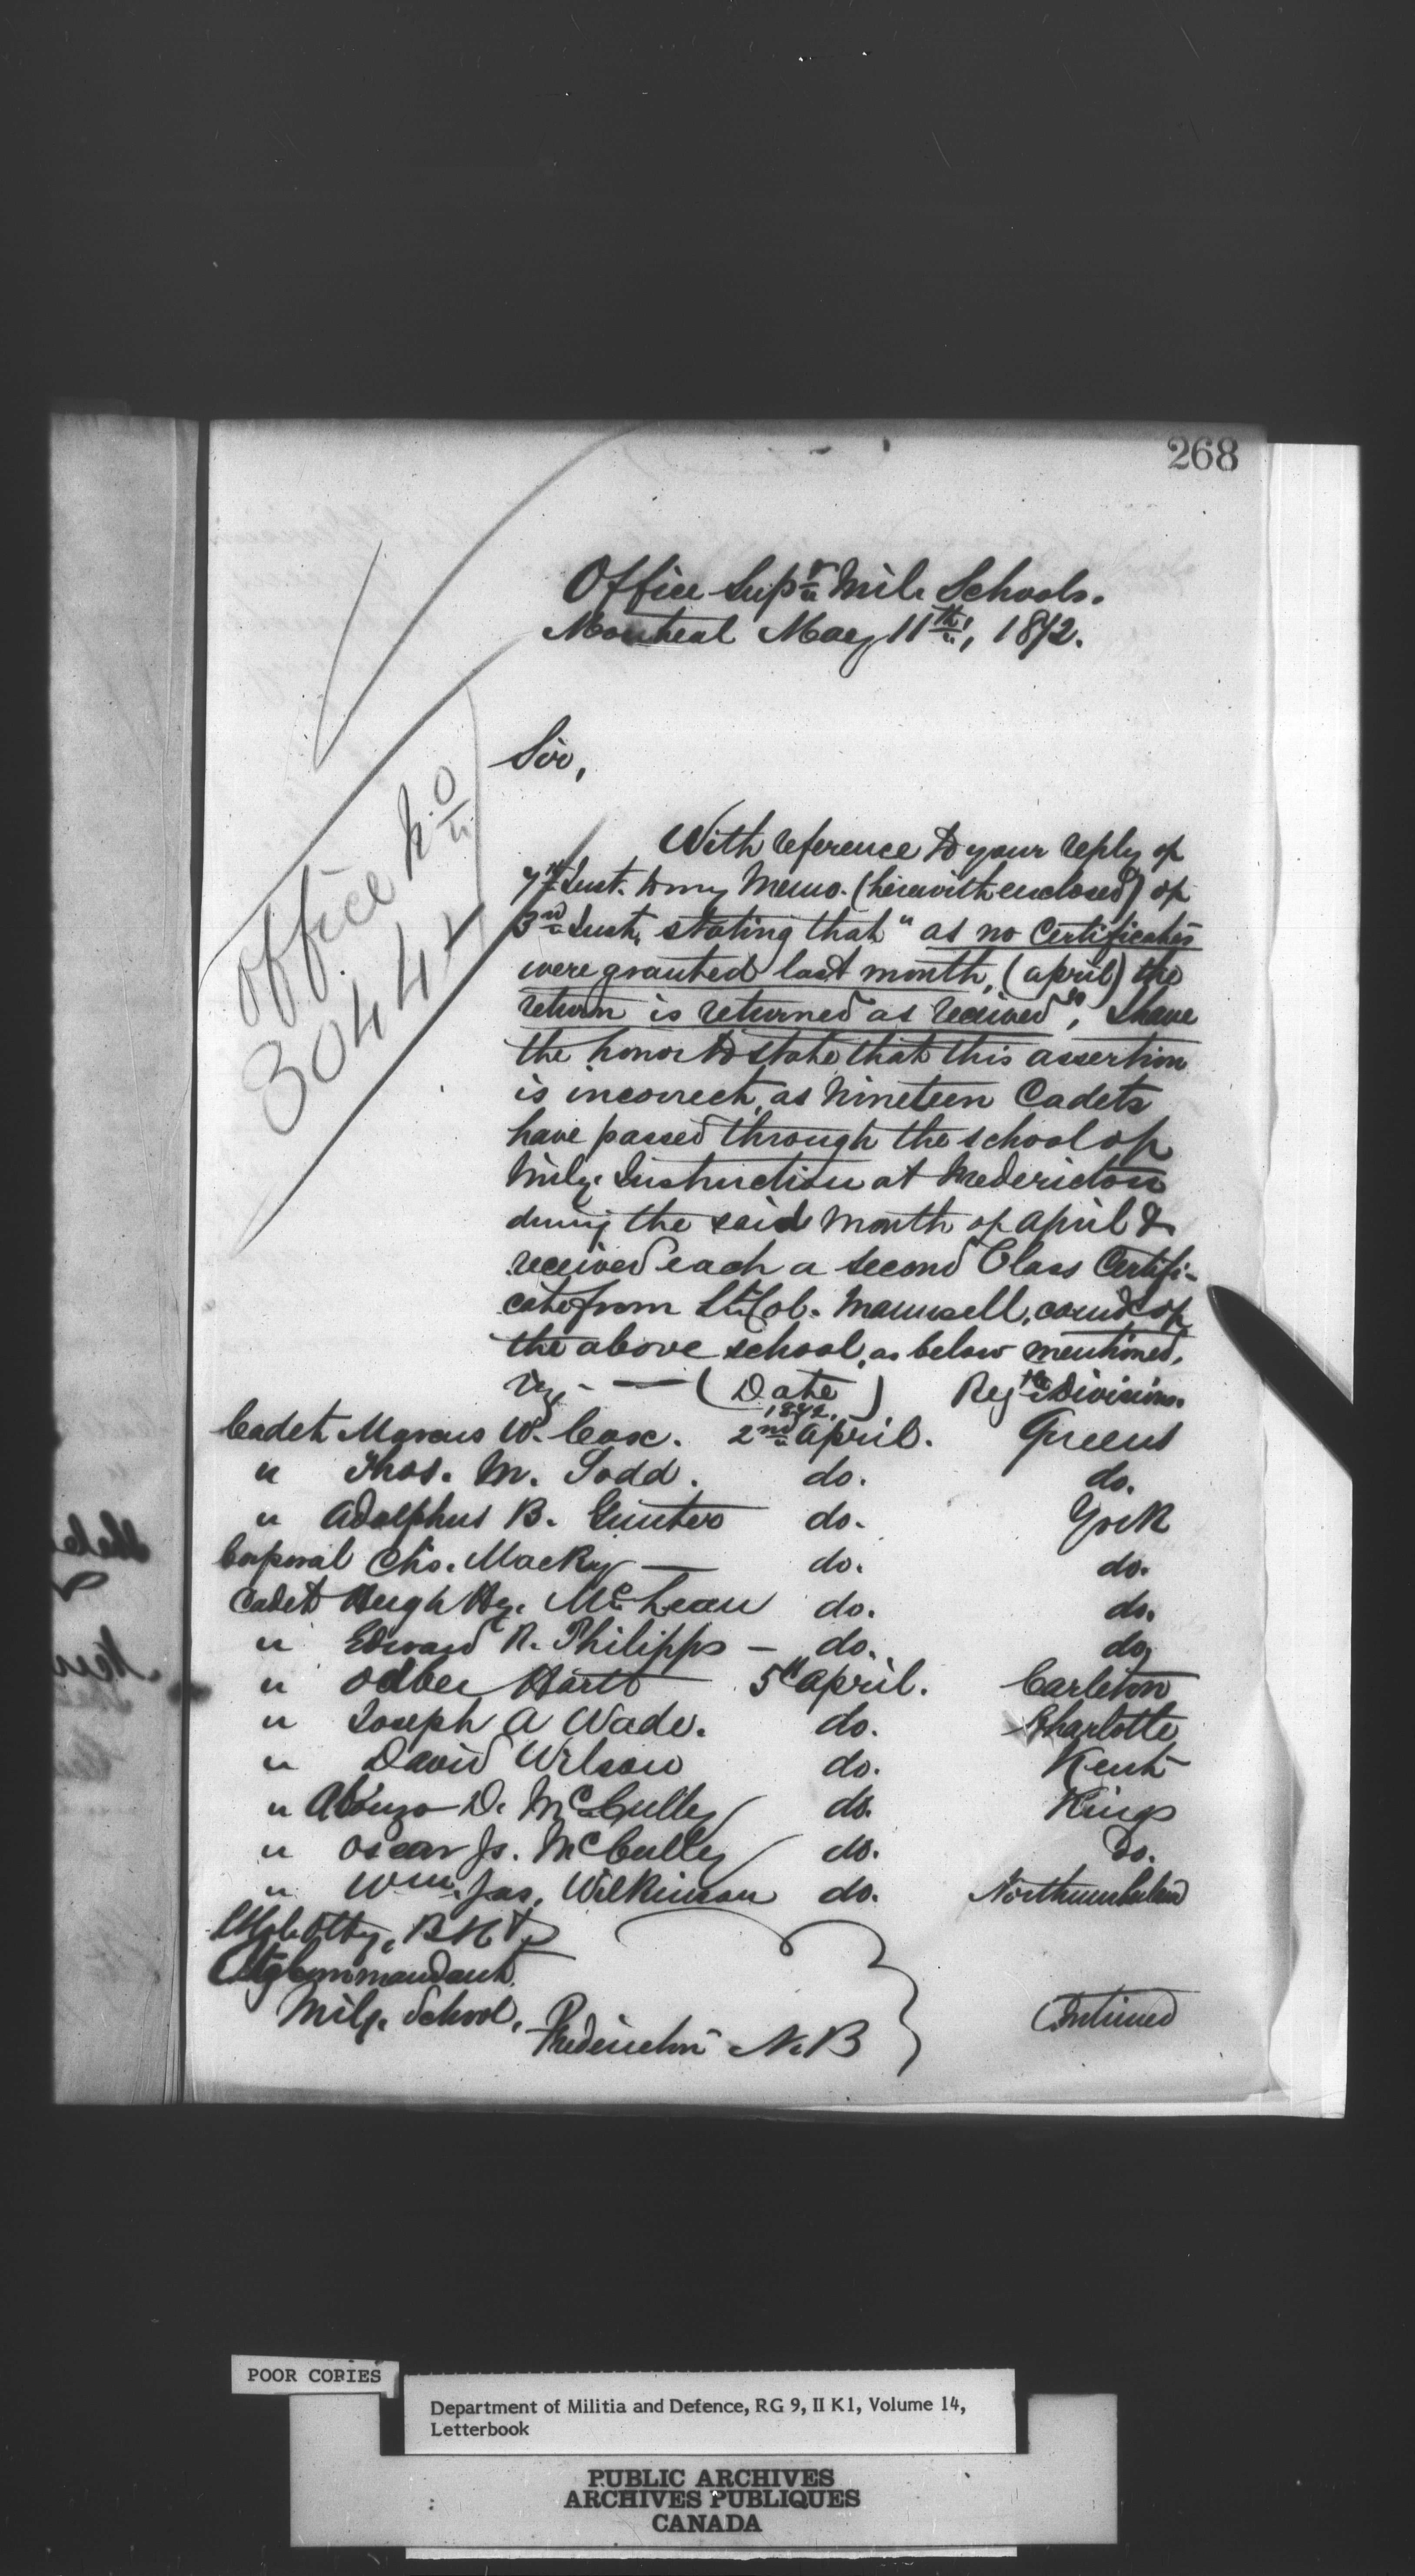 268
Office Supr Mil. Schools.
Montreal May 11th, 1872.
Office No
30442
Sir,
With reference to your reply of
7th Inst. to my Memo. (herewith enclosed) of
3rd Inst, stating that "as no Certificates
were granted last month, (april) the
return is returned as received", I have
the honor to state that this assertion
is incorrect, as Nineteen Cadets
have passed through the school of
Mily. Instruction at Fredericton
during the said month of april &
received each a second Class Certifi-
cate from Lt. Col. Maunsell, comdt of
the above school, as below mentioned,
viz, — (Date 1872.) Regtl Divisions.
Cadet Marcus W. Cox. 2nd april. Queens
" Thos. M. Todd. do. do.
" Adolphus B. Gunter do. York
Corporal Chs. Mackay — do. do.
Cadet Hugh Hy. McLean do. do.
" Edward R. Philipps - do. do.
" Odber Hartt 5th april. Carleton
" Joseph A Wade. do. Charlotte
" David Wilson do. Kent
" Alonzo D. McCulley do. Kings
" Oscar Js. McCulley do. do.
" Wm. Jas. Wilkinson do. Northumberland
Otty,
Actg Commandant.
Mily. School,
Fredericton N.B
Continued
POOR COPIES
Department of Militia and Defence, RG 9, II K1, Volume 14,
Letterbook
PUBLIC ARCHIVES
ARCHIVES PUBLIQUES
CANADA